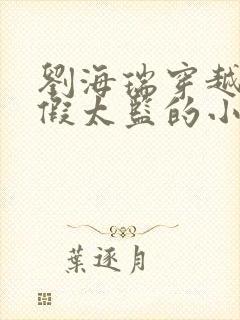 劉海瑞穿越
假太監的小
葉逐月